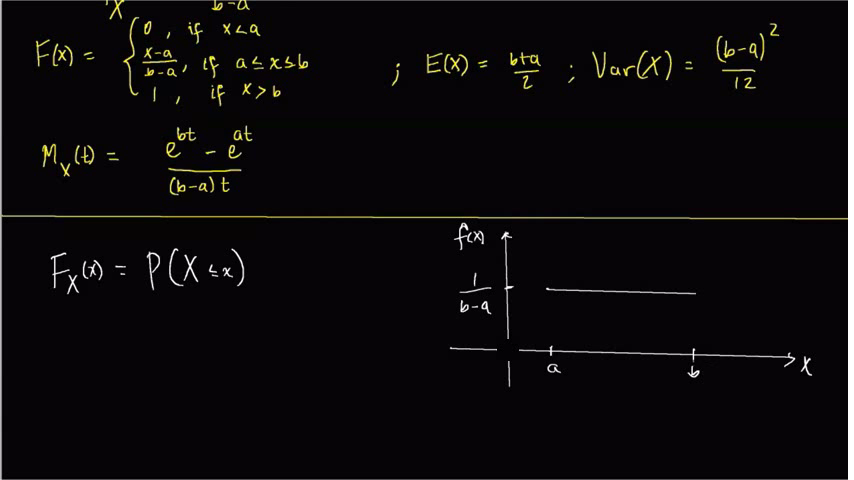 X b-a
F(x) = { 0, if x<a
x-a/b-a, if a≤x≤b
1, if x>b
; E(X) = b+a/2 ; Var(X) = (b-a)²/12
M_X(t) = e^{bt} - e^{at}/(b-a)t
F_X(x) = P(X≤x)
f(x)
1/b-a
a b x